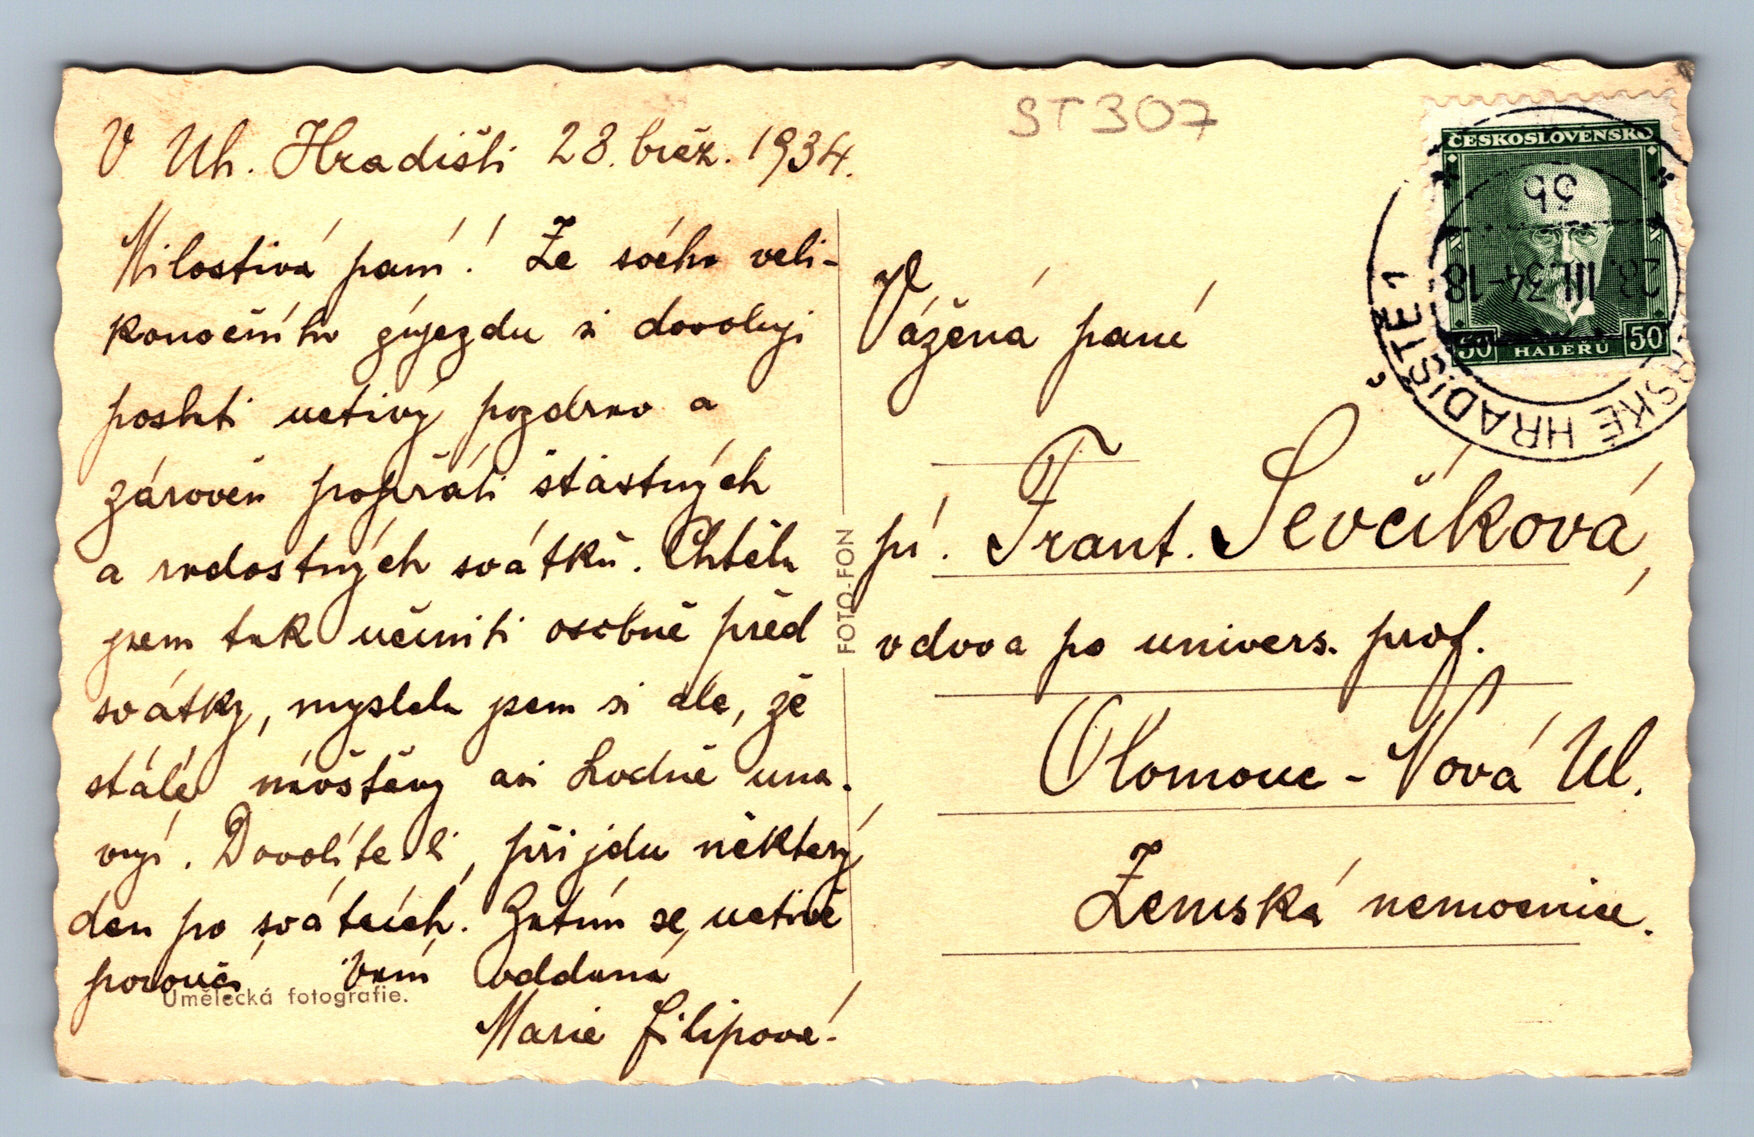 V Uh. Hradišti 28. břez. 1934.
Milostivá paní! Ze svého veli-
konočního zájezdu si dovoluji
poslati uctivý pozdrav a
zároveň popřáti šťastných
a radostných svátků. Chtěla
jsem tak učiniti osobně před
svátky, myslela jsem si ale, že
stálé návštěvy asi hodně una-
vují. Dovolíte-li, přijdu některý
den po svátcích. Zatím se uctivě
poroučí Vám oddaná
Marie Filipová.
Umělecká fotografie.
FOTO-FON
ST 307
ČESKOSLOVENSKO
50 HALÉŘŮ 50
HRADIŠTĚ 1
28.III.34-18
3b
Vážená paní
pí. Frant. Ševčíková,
vdova po univers. prof.
Olomouc - Nová Ul.
Zemská nemocnice.